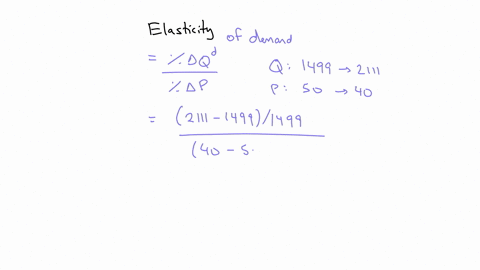 Elasticity of demand
= %ΔQᵈ / %ΔP
Q: 1499 → 2111
P: 50 → 40
= (2111 - 1499)/1499
(40 - 5